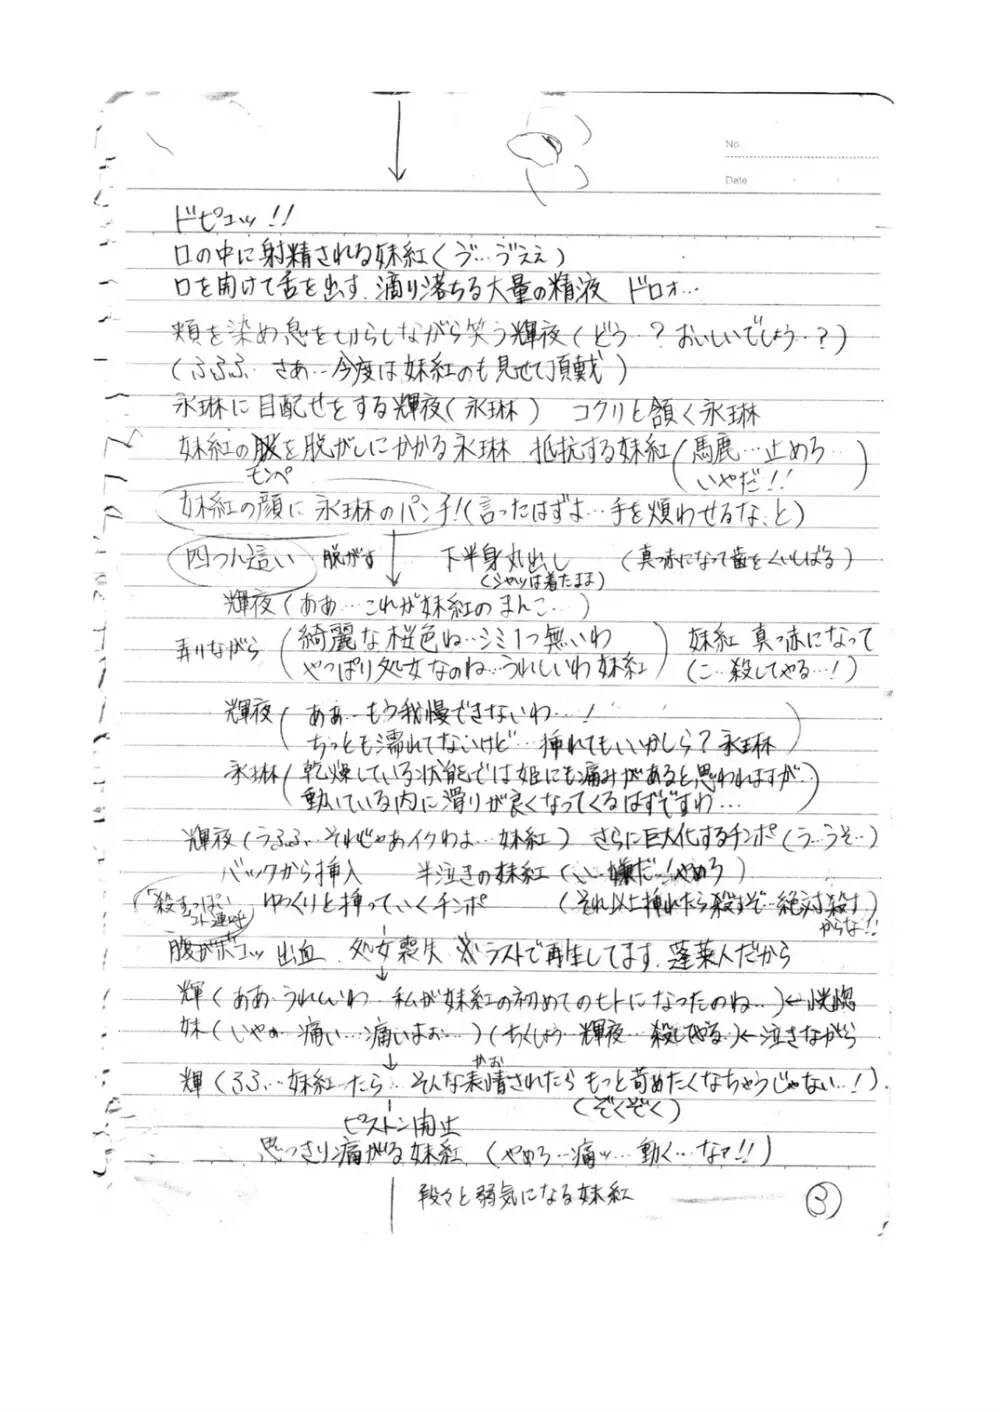 No.
Date
ドピュッ!!
口の中に射精される妹紅(ゔ…ゔえぇ)
口を開けて舌を出す、滴り落ちる大量の精液 ドロォ…
頬を染め息を切らしながら笑う輝夜(どう…?おいしいでしょう…?)
(ふふふ…さあ…今度は妹紅のも見せて頂戴)
永琳に目配せをする輝夜(永琳) コクリと頷く永琳
妹紅の服を脱がしにかかる永琳 抵抗する妹紅(馬鹿…止めろ…
モンペ いやだ!!)
妹紅の顔に永琳のパンチ!(言ったはずよ…手を煩わせるな、と)
四つん這い 脱がす 下半身丸出し (真っ赤になって歯をくいしばる)
(シャツは着たまま)
輝夜(ああ…これが妹紅のまんこ…)
弄りながら (綺麗な桜色ね…シミ1つ無いわ 妹紅 真っ赤になって
やっぱり処女なのね…うれしいわ妹紅) (こ…殺してやる…!)
輝夜(ああ…もう我慢できないわ…!
ちっとも濡れてないけど…挿れてもいいかしら?永琳)
永琳(乾燥している状態では姫にも痛みがあると思われますが…
動いている内に滑りが良くなってくるはずですわ…)
輝夜(うふふ…それじゃあイクわよ…妹紅) さらに巨大化するチンポ(う…うそ…)
バックから挿入 半泣きの妹紅(い…嫌だ…!やめろ)
「殺すっぽいコト連呼」 ゆっくりと挿っていくチンポ (それ以上挿れたら殺すぞ…絶対殺す
からな!!)
腹がボコッ 出血 処女喪失 ※ラストで再生してます、蓬莱人だから
輝(ああ…うれしいわ…私が妹紅の初めてのヒトになったのね…)←恍惚
妹(いやぁ…痛い…痛いよぉ…)(ちくしょう…輝夜…殺してやる)←泣きながら
輝(ふふ…妹紅ったら…そんな表情されたらもっと苛めたくなちゃうじゃない…!)
かお
(ぞくぞく)
ピストン開止
思っきり痛がる妹紅 (やめろ…痛ッ…動く…なァ!!)
段々と弱気になる妹紅
③